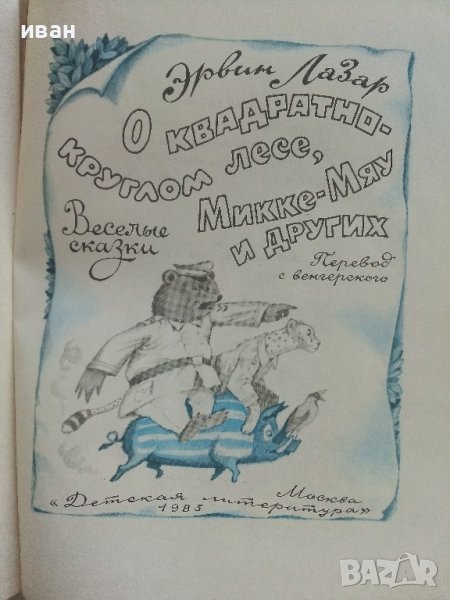 иван
Эрвин Лазар
О квадратно-
круглом лесе,
Микке-Мяу
и других
Веселые
сказки
Перевод
с венгерского
Москва
«Детская литература»
1985
BAZAR